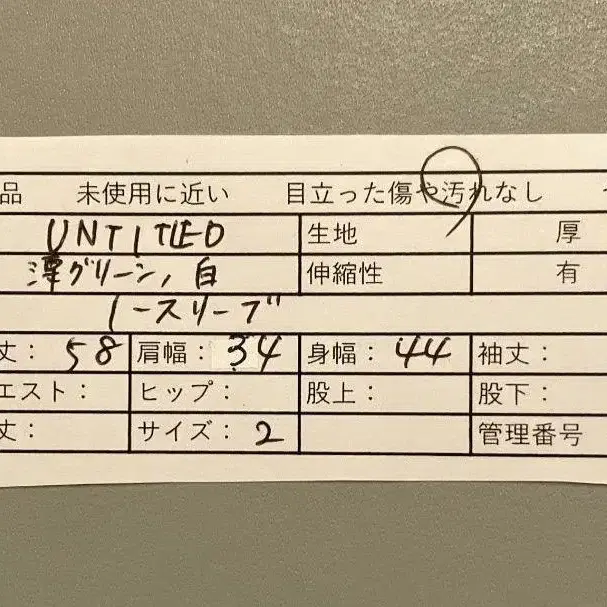 品 未使用に近い 目立った傷や汚れなし
UNTITLED 生地 厚
グリーン, 白 伸縮性 有
ノースリーブ
丈: 58 肩幅: 34 身幅: 44 袖丈:
エスト: ヒップ: 股上: 股下:
丈: サイズ: 2 管理番号